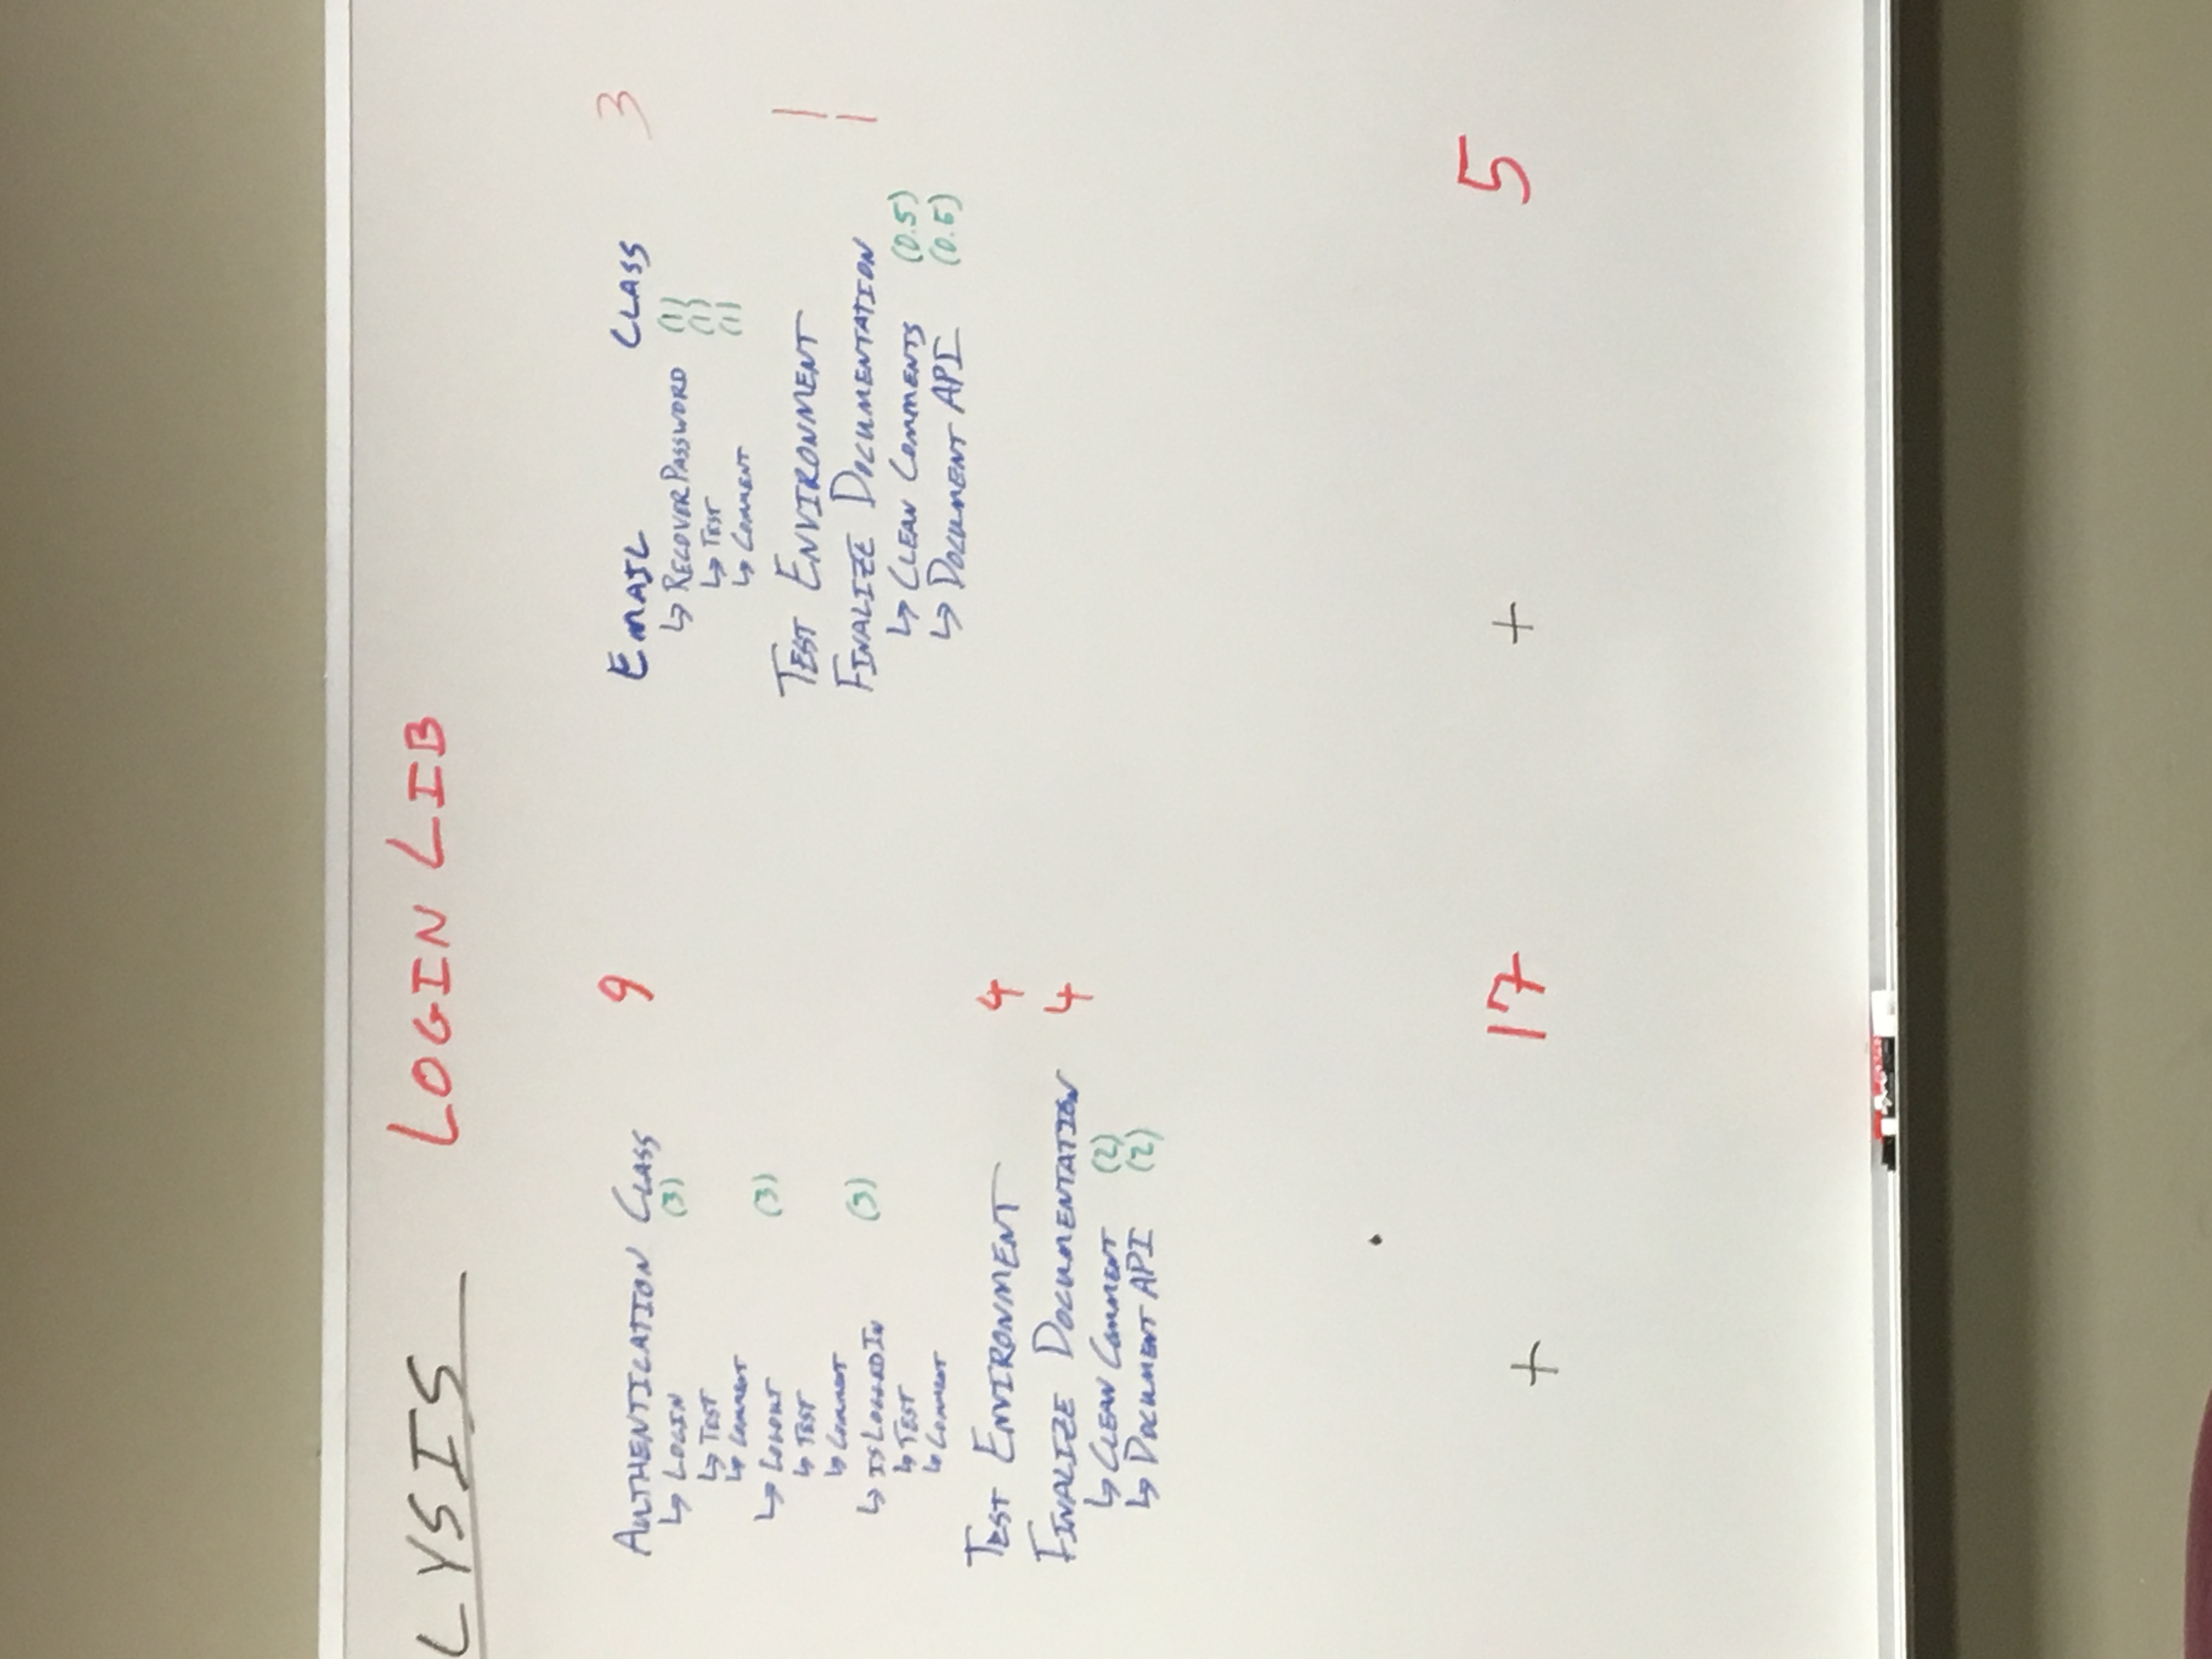 LYSIS LOGIN LIB
AUTHENTICATION CLASS 9
↳ LOGIN (3)
↳ TEST
↳ COMMENT
↳ LOGOUT (3)
↳ TEST
↳ COMMENT
↳ ISLOGGEDIN (3)
↳ TEST
↳ COMMENT
TEST ENVIRONMENT 4
FINALIZE DOCUMENTATION 4
↳ CLEAN COMMENT (2)
↳ DOCUMENT API (2)
+ 17
EMAIL CLASS 3
↳ RECOVERPASSWORD (1)
↳ TEST (1)
↳ COMMENT (1)
TEST ENVIRONMENT 1
FINALIZE DOCUMENTATION 1
↳ CLEAN COMMENTS (0.5)
↳ DOCUMENT API (0.5)
+ 5